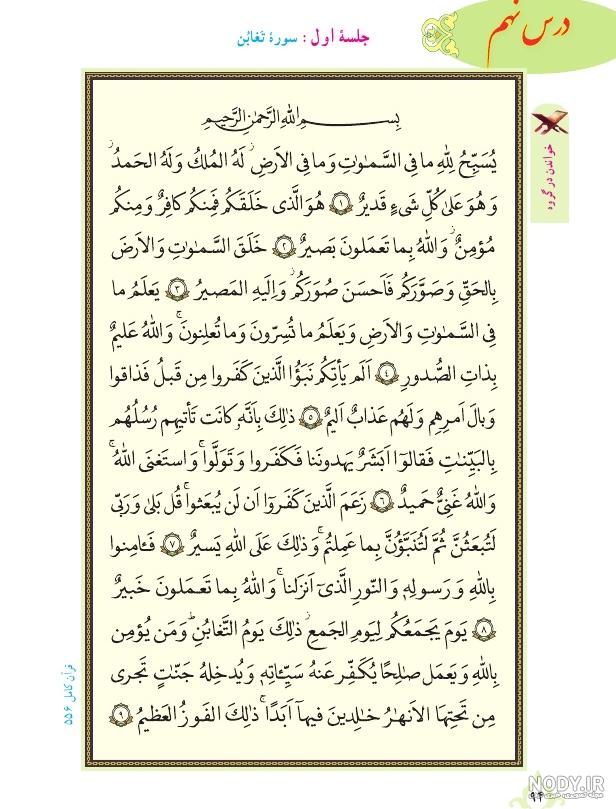 درس نهم
جلسهٔ اول : سورهٔ تَغابُن
خواندن در گروه
بِسْمِ اللهِ الرَّحمٰنِ الرَّحیمِ
یُسَبِّحُ لِلّٰهِ ما فِی السَّمٰوٰتِ وَ ما فِی الاَرضِ ۖ لَهُ المُلکُ وَ لَهُ الحَمدُ ۖ
وَ هُوَ عَلیٰ کُلِّ شَیءٍ قَدیرٌ ﴿۱﴾ هُوَ الَّذی خَلَقَکُم فَمِنکُم کافِرٌ وَ مِنکُم
مُؤمِنٌ ۚ وَ اللهُ بِما تَعمَلونَ بَصیرٌ ﴿۲﴾ خَلَقَ السَّمٰوٰتِ وَ الاَرضَ
بِالحَقِّ وَ صَوَّرَکُم فَاَحسَنَ صُوَرَکُم ۖ وَ اِلَیهِ المَصیرُ ﴿۳﴾ یَعلَمُ ما
فِی السَّمٰوٰتِ وَ الاَرضِ وَ یَعلَمُ ما تُسِرّونَ وَ ما تُعلِنونَ ۚ وَ اللهُ عَلیمٌ
بِذاتِ الصُّدورِ ﴿۴﴾ اَلَم یَأتِکُم نَبَؤُا الَّذینَ کَفَروا مِن قَبلُ فَذاقوا
وَبالَ اَمرِهِم وَ لَهُم عَذابٌ اَلیمٌ ﴿۵﴾ ذٰلِکَ بِاَنَّهُ کانَت تَأتیهِم رُسُلُهُم
بِالبَیِّنٰتِ فَقالوا اَبَشَرٌ یَهدونَنا فَکَفَروا وَ تَوَلَّوا ۚ وَ استَغنَی اللهُ ۚ
وَ اللهُ غَنِیٌّ حَمیدٌ ﴿۶﴾ زَعَمَ الَّذینَ کَفَروا اَن لَن یُبعَثوا ۚ قُل بَلیٰ وَ رَبّی
لَتُبعَثُنَّ ثُمَّ لَتُنَبَّؤُنَّ بِما عَمِلتُم ۚ وَ ذٰلِکَ عَلَی اللهِ یَسیرٌ ﴿۷﴾ فَـٔامِنوا
بِاللهِ وَ رَسولِهِ وَ النّورِ الَّذی اَنزَلنا ۚ وَ اللهُ بِما تَعمَلونَ خَبیرٌ
﴿۸﴾ یَومَ یَجمَعُکُم لِیَومِ الجَمعِ ۖ ذٰلِکَ یَومُ التَّغابُنِ ۗ وَ مَن یُؤمِن
بِاللهِ وَ یَعمَل صٰلِحًا یُکَفِّر عَنهُ سَیِّئاتِهِ وَ یُدخِلهُ جَنّٰتٍ تَجری
مِن تَحتِهَا الاَنهٰرُ خٰلِدینَ فیها اَبَدًا ۚ ذٰلِکَ الفَوزُ العَظیمُ ﴿۹﴾
قرآن کامل ۵۵۶
NODY.IR